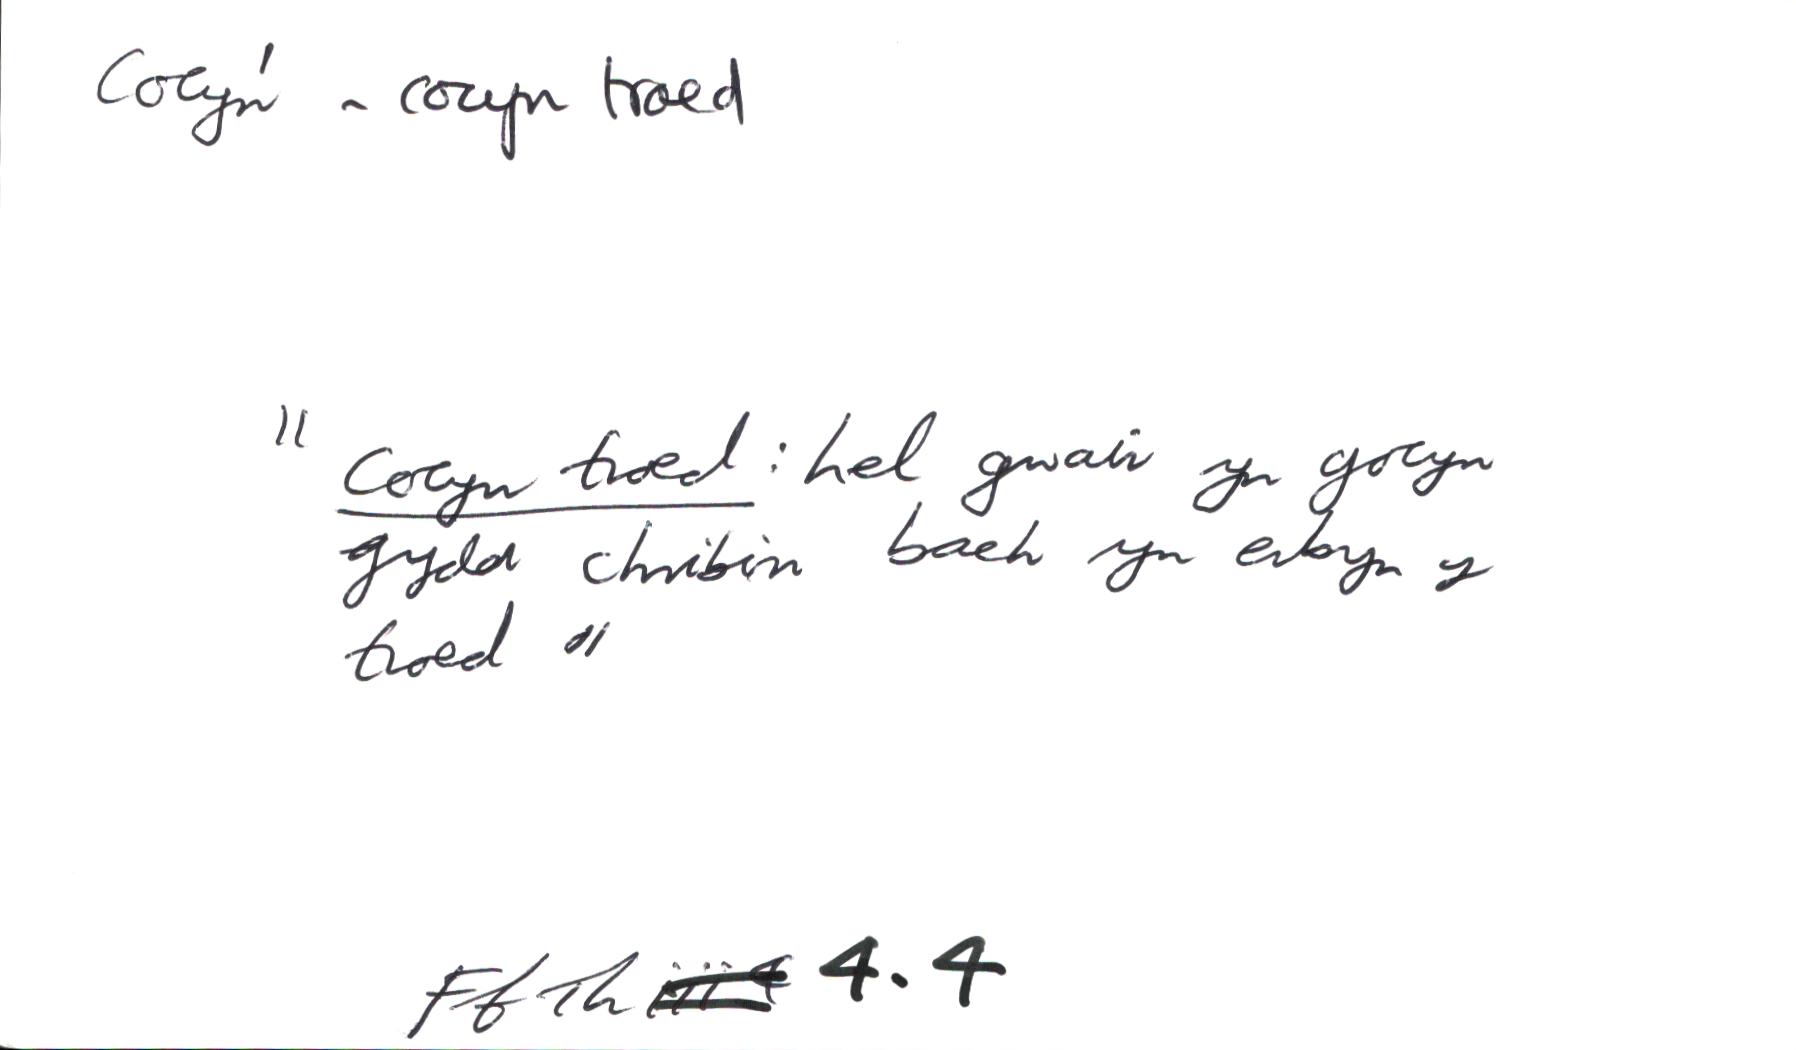 Cocyn' - cocyn troed
" Cocyn troed : hel gwair yn gocyn
gydd chribin bach yn erbyn y
troed "
Ff Th 4.4